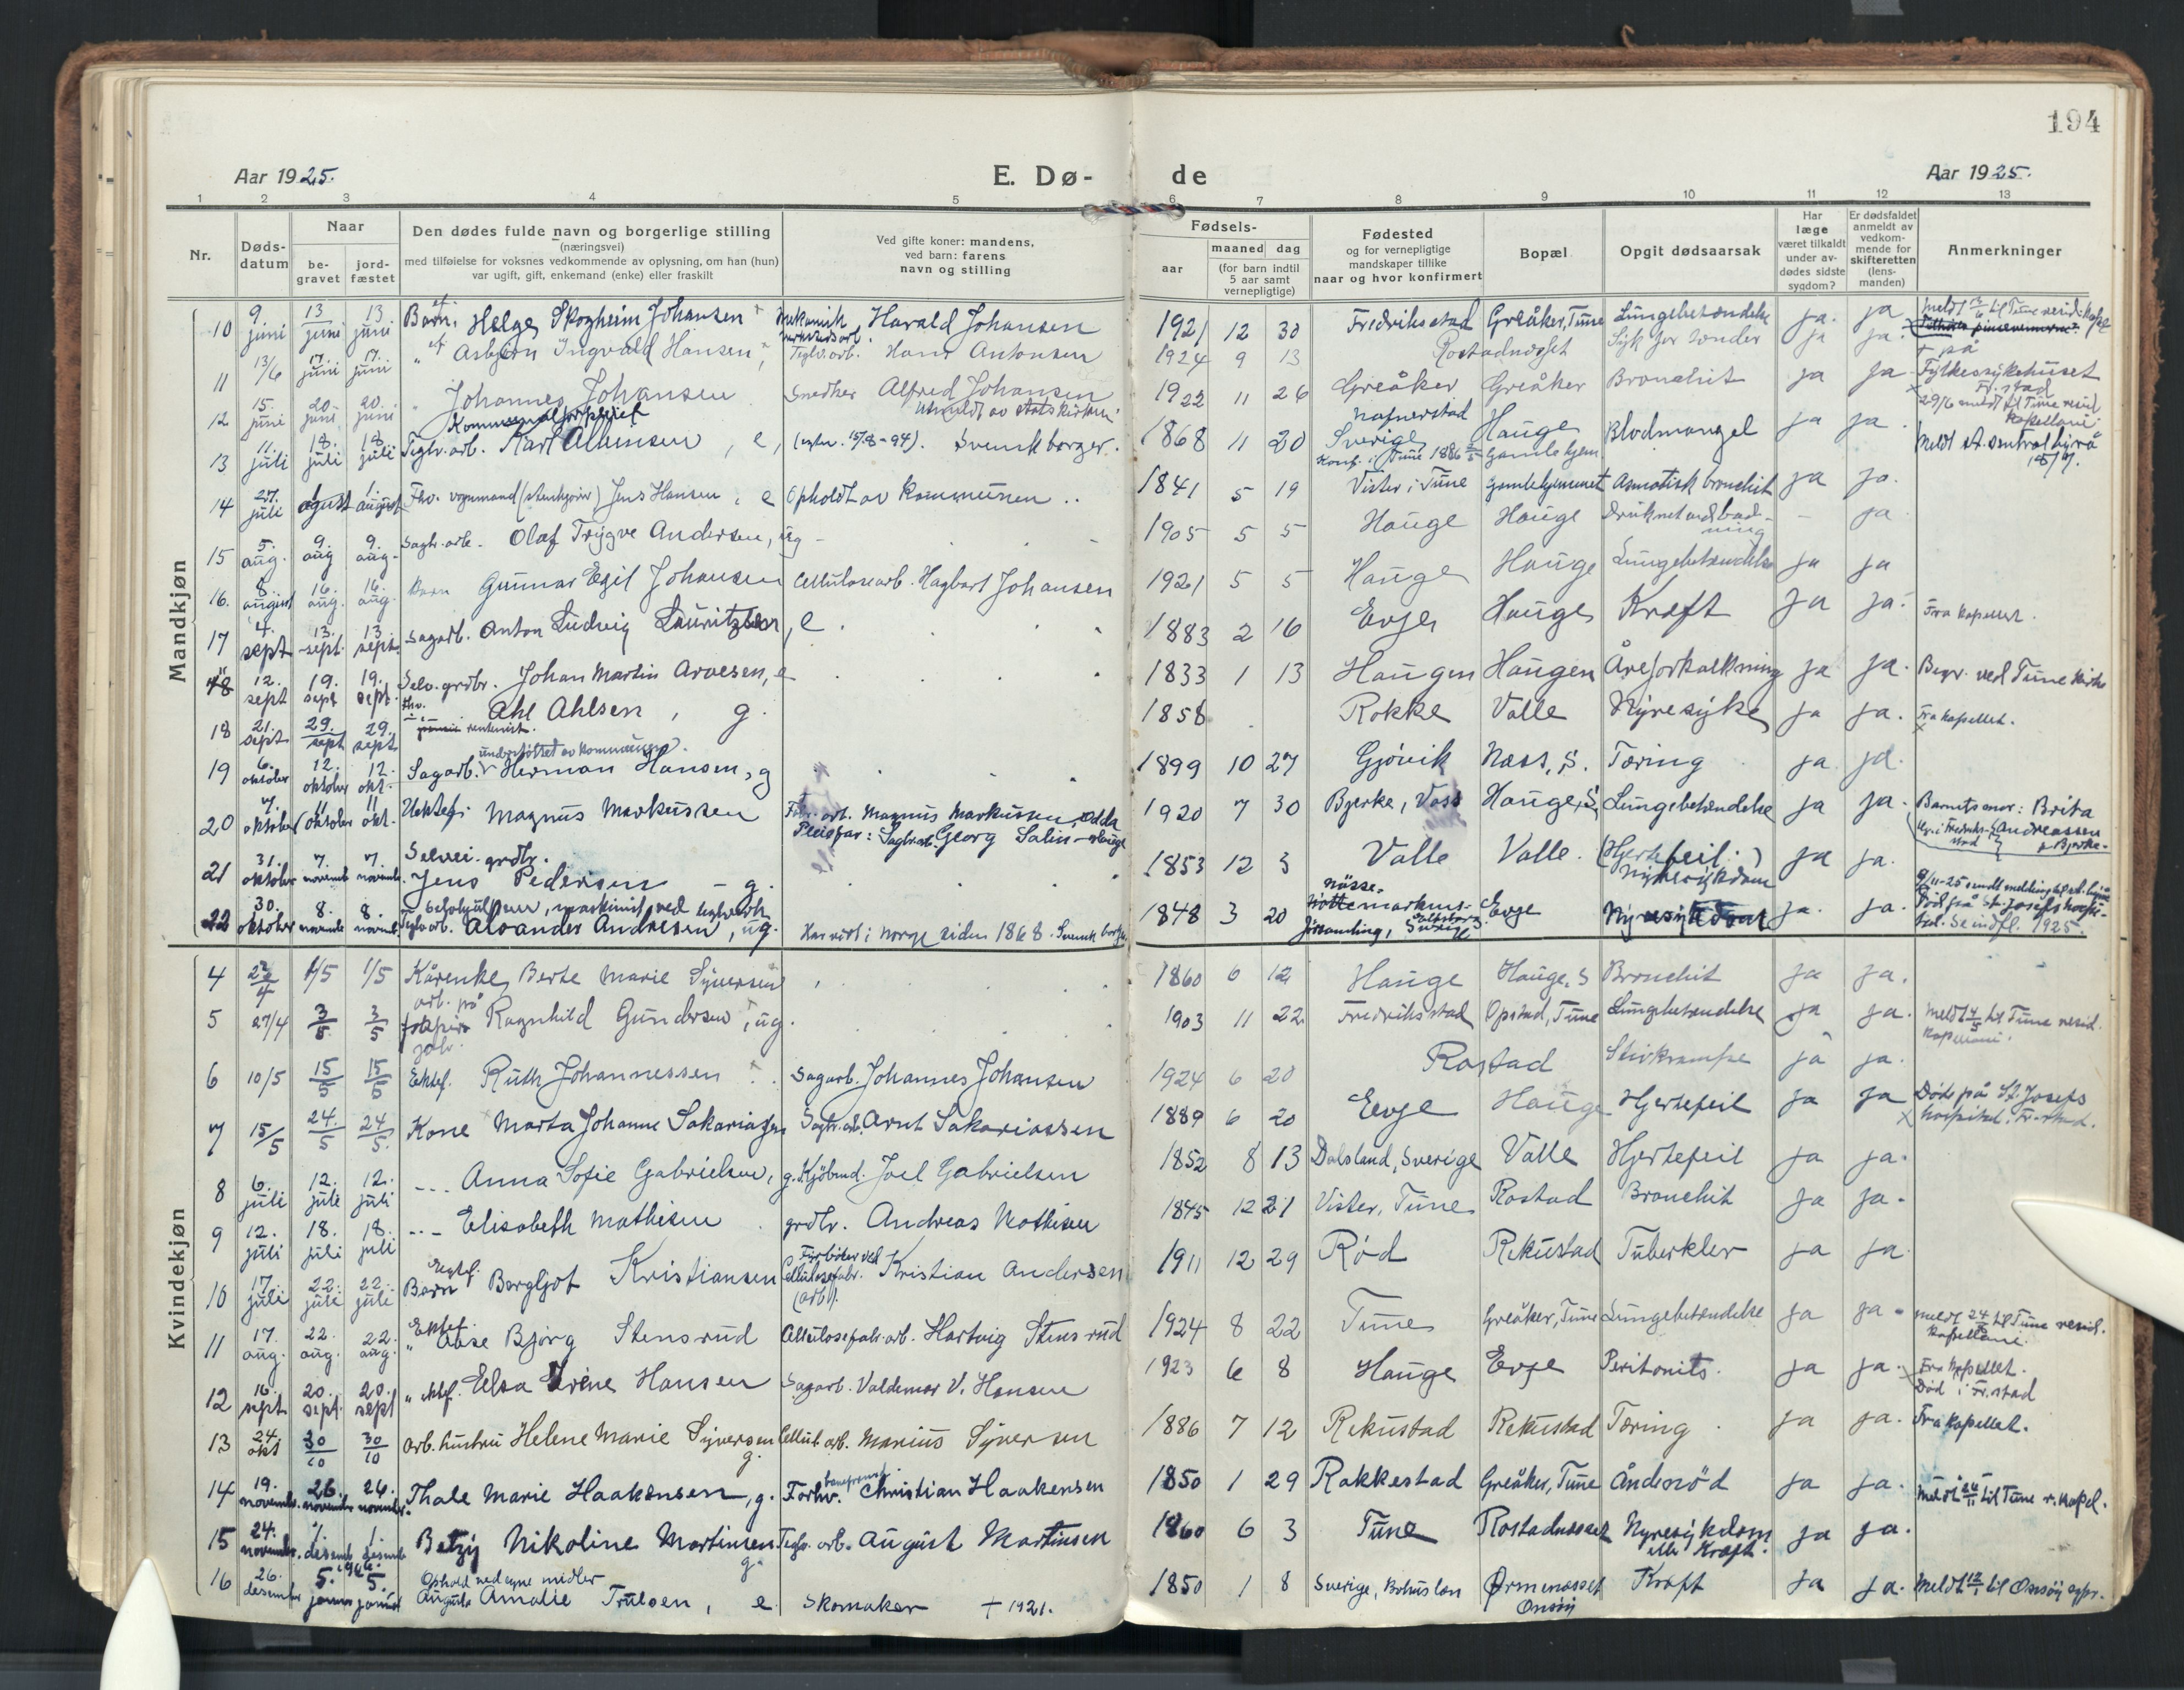 194
Aar 1925.
E. Dø-
de
Aar 1925.
1 2 3 4 5 6 7 8 9 10 11 12 13
Nr.
Døds-
datum
Naar
be-
gravet
jord-
fæstet
Den dødes fulde navn og borgerlige stilling
(næringsvei)
med tilføielse for voksnes vedkommende av oplysning, om han (hun)
var ugift, gift, enkemand (enke) eller fraskilt
Ved gifte koner: mandens,
ved barn: farens
navn og stilling
Fødsels-
aar
maaned dag
(for barn indtil
5 aar samt
vernepligtige)
Fødested
og for vernepligtige
mandskaper tillike
naar og hvor konfirmert
Bopæl
Opgit dødsaarsak
Har
læge
været tilkaldt
under av-
dødes sidste
sygdom?
Er dødsfaldet
anmeldt av
vedkom-
mende for
skifteretten
(lens-
manden)
Anmerkninger
Mandkjøn
10 9. juni 13 juni 13 juni Barn. Helge Skogheim Johansen mekanisk verkstedsarb. Harald Johansen 1921 12 30 Fredriksstad Greåker, Tune Lungebetændelse ja. ja
11 13/6 17. juni 17. juni " Asbjørn Ingvald Hansen, Teglv. arb. Hans Antonsen 1924 9 13 Rostadnesset ja ja.
12 15. juni 20. juni 20. juni Johannes Johansen Snedker Alfred Johansen Utmeldt av statskirken. 1922 11 26 Greåker Greåker Bronchit ja ja + på Fylkessykehuset Fr.stad
29/6 meldt til Tune resid. kapellani
13 11. juli 18. juli 18. juli Teglv. arb. Karl Albinsen, e, Svensk borger. 1868 11 20 Sverige Konf. i Tune 1886 Hauge Gamlehjem Blodmangel ja ja. Meldt st. sentralbyrå 18/7.
14 27. juli 1. agust 1. august Fhv. vognmand (stenkjører) Jens Hansen, e Opholdt av kommunen 1841 5 19 Vister i Tune Gamlehjemmet Asmatisk bronchit ja ja.
15 5. aug. 9. aug 9. aug. Sagbr. arb. Olaf Trygve Andersen, ug 1905 5 5 Hauge Hauge Druknet und. bad-
ning - ja
16. 8. august 16. aug. 16. aug. Barn Gunnar Egil Johansen Cellulosearb. Hagbart Johansen 1921 5 5 Hauge Hauge Lungebetændelse ja ja
17 4. sept 13. sept. 13 sept. Sagarb. Anton Ludvig Lauritzsen, e 1883 2 16 Evje Hauge Kræft ja ja. Fra kapellet.
18 12. sept 19. sept 19. sept. Selv. grdbr. Johan Martin Arvesen, e 1833 1 13 Haugen Haugen Åreforkalkning ja ja. Begr. ved Tune kirke
18 21. sept 29. sept 29. sept fhv. Ahl Ahlsen, g. 1858 Rokke Valle Nyresyke ja ja. Fra kapellet.
19 6. oktober 12. oktober 12. okt. Sagarb. understøttet av kommunen. Herman Hansen, g 1899 10 27 Gjøvik Næss, S. Tæring ja ja.
20 7. oktober 11 oktober 11 okt. Uektef. Magnus Markussen Fabr. arb. Magnus Markussen, Odda
Pleiefar: Sagbr.arb. Georg Salin - Hauge 1920 7 30 Bjerke, Voss Hauge, S. Lungebetændelse ja ja. Barnets mor: Brita Andreassen f. Bjerke.
21 31. oktober 7. novemb. 7. novemb. Selvei. grdbr. Jens Pedersen - g. 1853 12 3 Valle Valle. (Hjertefeil:) Nyresykdom ja ja.
22 30. oktober 8. novemb 8. novemb. Teglv. arb. Alexander Andresen, ug. Har vært i Norge siden 1868. Svensk borger. 1848 3 20 Evje Nyresykdom ja. ja. Død på St. Josefs hospi-
tal. Se indfl. 1925.
Kvindekjøn
4 22/4 1/5 1/5 Kårenke, Berte Marie Syversen 1860 6 12 Hauge Hauge. S Bronchit ja ja.
5 27/4 3/5 3/5 arb. på Ragnhild Gundersen, ug. 1903 11 22 Fredriksstad Opstad, Tune Lungebetændelse ja ja. Meldt 4/5 til Tune resid. kapellani.
6 10/5 15/5 15/5 Ektef. Ruth Johannessen Sagarb. Johannes Johansen 1924 6 20 Rostad Stivkrampe ja ja.
7 15/5 24./5 24/5. Kone Marta Johanne Sakariassen Sagbr. arb. Arnt Sakariassen 1889 6 20 Evje Hauge Hjertefeil ja ja Døde på St. Josefs hospital. Fr.stad.
8 6. juli 12. juli 12. juli --- Anna Sofie Gabrielsen, g. Kjøbmd. Joel Gabrielsen 1852 8 13 Dalsland, Sverige Valle Hjertefeil ja ja.
9 12. juli 18. juli 18. juli --- Elisabeth Mathisen grdbr. Andreas Mathisen 1845 12 21 Vister, Tune Rostad Bronchit ja ja.
10 17. juli 22. juli 22. juli Ægtef. Barn Bergljot Kristiansen Fyrbøter ved Cellulosefabr. (arb). Kristian Andersen 1911 12 29 Rød Rekustad Tuberkler ja ja.
11 17. aug. 22. aug. 22. aug. Ektef. " Aase Bjørg Stensrud Cellulosefabr. arb. Hartvig Stensrud 1924 8 22 Tune Greåker, Tune Lungebetændelse ja ja. Meldt 24/8 til Tune resid. kapellani.
12 16. sept 20. sept. 20. sept " ektef. Elsa Irene Hansen Sagarb. Valdemar V. Hansen 1923 6 8 Hauge Evje Peritonits. ja ja. Fra kapellet. Død i Fr.stad
13 24. okt 30/10 30/10 arb. hustru Helene Marie Syversen g. Cellul. arb. Marius Syversen 1886 7 12 Rekustad Rekustad Tæring ja ja. Fra kapellet.
14 19. november. 26. november 26. november. Thale Marie Haakensen, g. Forhv. Christian Haakensen 1850 1 29 Rakkestad Greåker, Tune Åndenød ja ja. Meldt 24/11 til Tune r. kapel.
15 24. november. 1. desemb 1. desemb Betzy Nikoline Martinsen g. Teglv. arb. August Martinsen 1860 6 3 Tune Rostadnesset Nyresykdom eller Kræft. ja ja.
16 26. desember 5. januar 1926. 5. januar Ophold ved egne midler
Augusta Amalie Trulsen, e Skomaker + 1921. 1850 1 8 Sverige, Bohuslen Ørmenesset Onsøy Kræft ja ja. Meldt 12/1 til Onsøy sgpr.